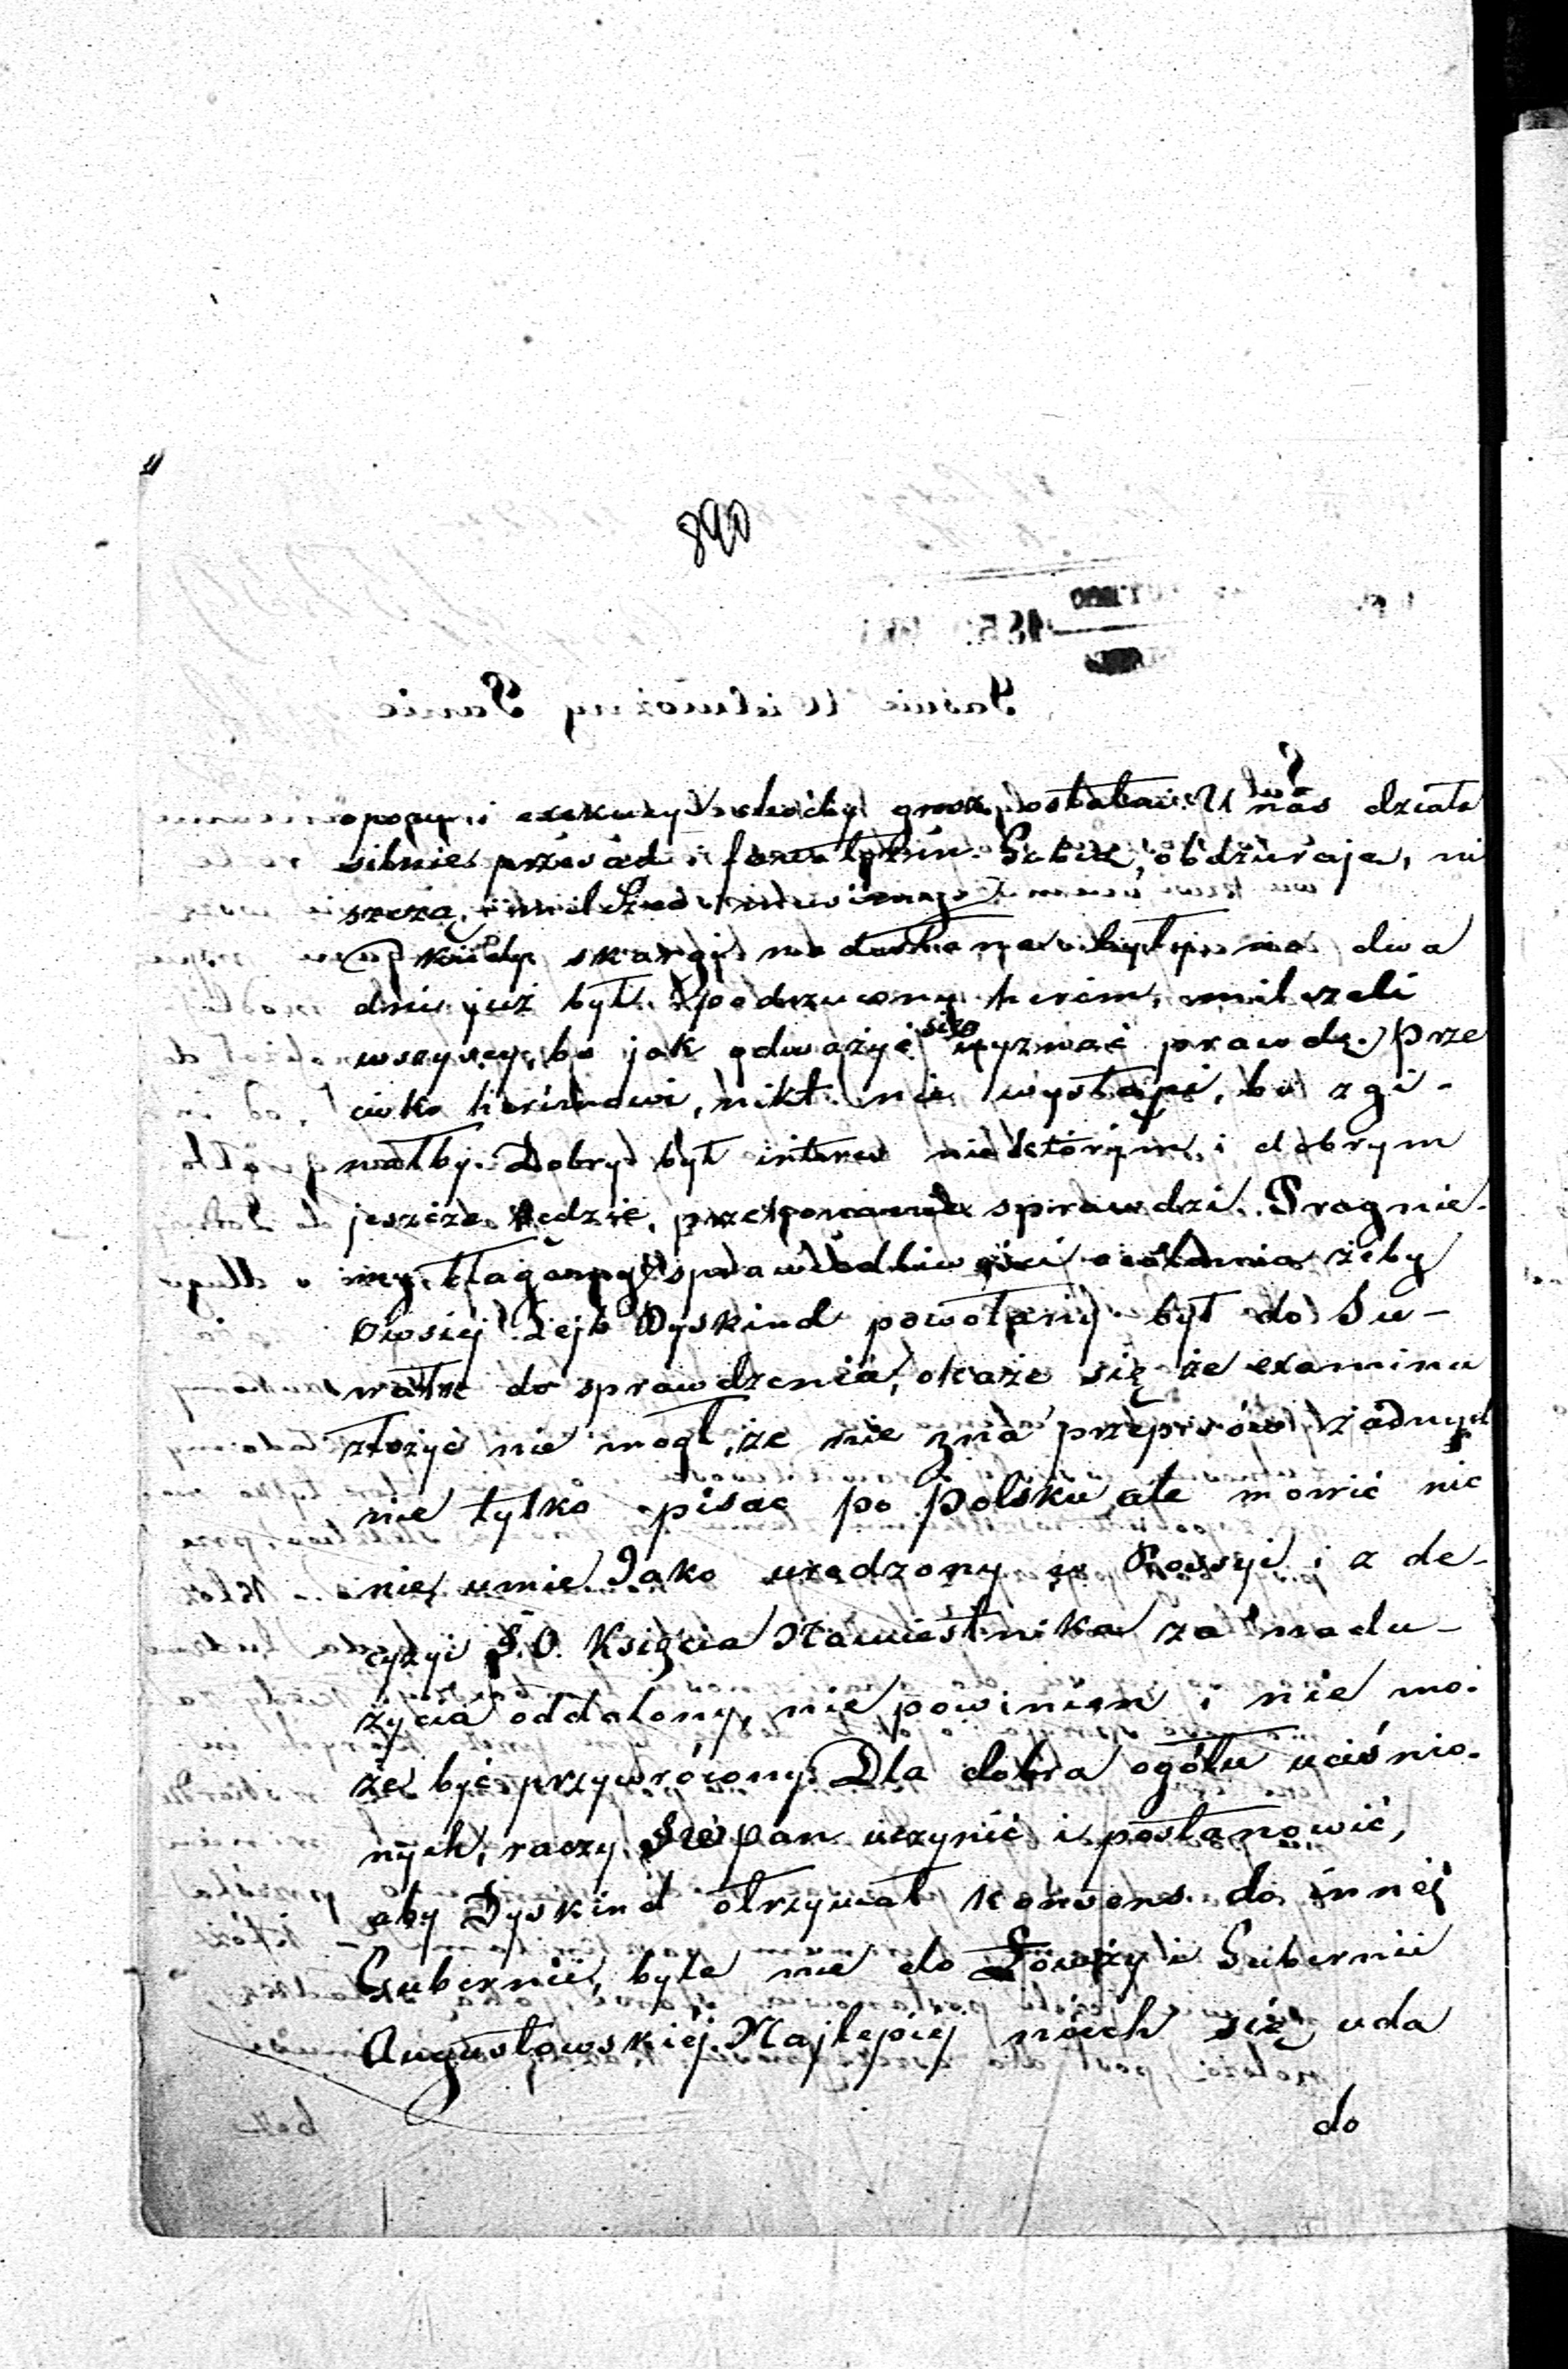 890
opozyi exekucyi choćby grosz, ostatni. U nas działa
silnie przesąd i fanatyzm. Gubią, obdzierają, ni
szczą,
kiedy skargi na dwa
dni już był podrzucony herem, milczeli
wszyscy, bo jak odważyć się wyznać prawdę. prze
ciwko herémowi, nikt nie wystąpi, bo zgi-
nąłby. Dobry był interes niektórym, i dobrym
jeszcze będzie, sprawdzi. Pragnie-
my, błagamy sprawiedliwości żeby
Owsiej Lejb Dyskind powołany był do Su-
wałk do sprawdzenia, okaże się że examinu
złożyć nie mogł, że nie zna przepisów żadnych
nie tylko pisać po polsku ale mowić nic
nie umie. Jako urodzony w Rossyi i z de-
cyzyi J.O. Księcia Namiestnika za nadu-
życia oddalony, nie powinien i nie mo-
że być przywrócony. Dla dobra ogółu uciśnio-
nych, raczy JW pan uczynić i postanowić,
aby Dyskind otrzymał konsens do innej
Gubernii, byle nie do Łomży i Gubernii
Augustowskiéj. Najlepiej niech się uda
do